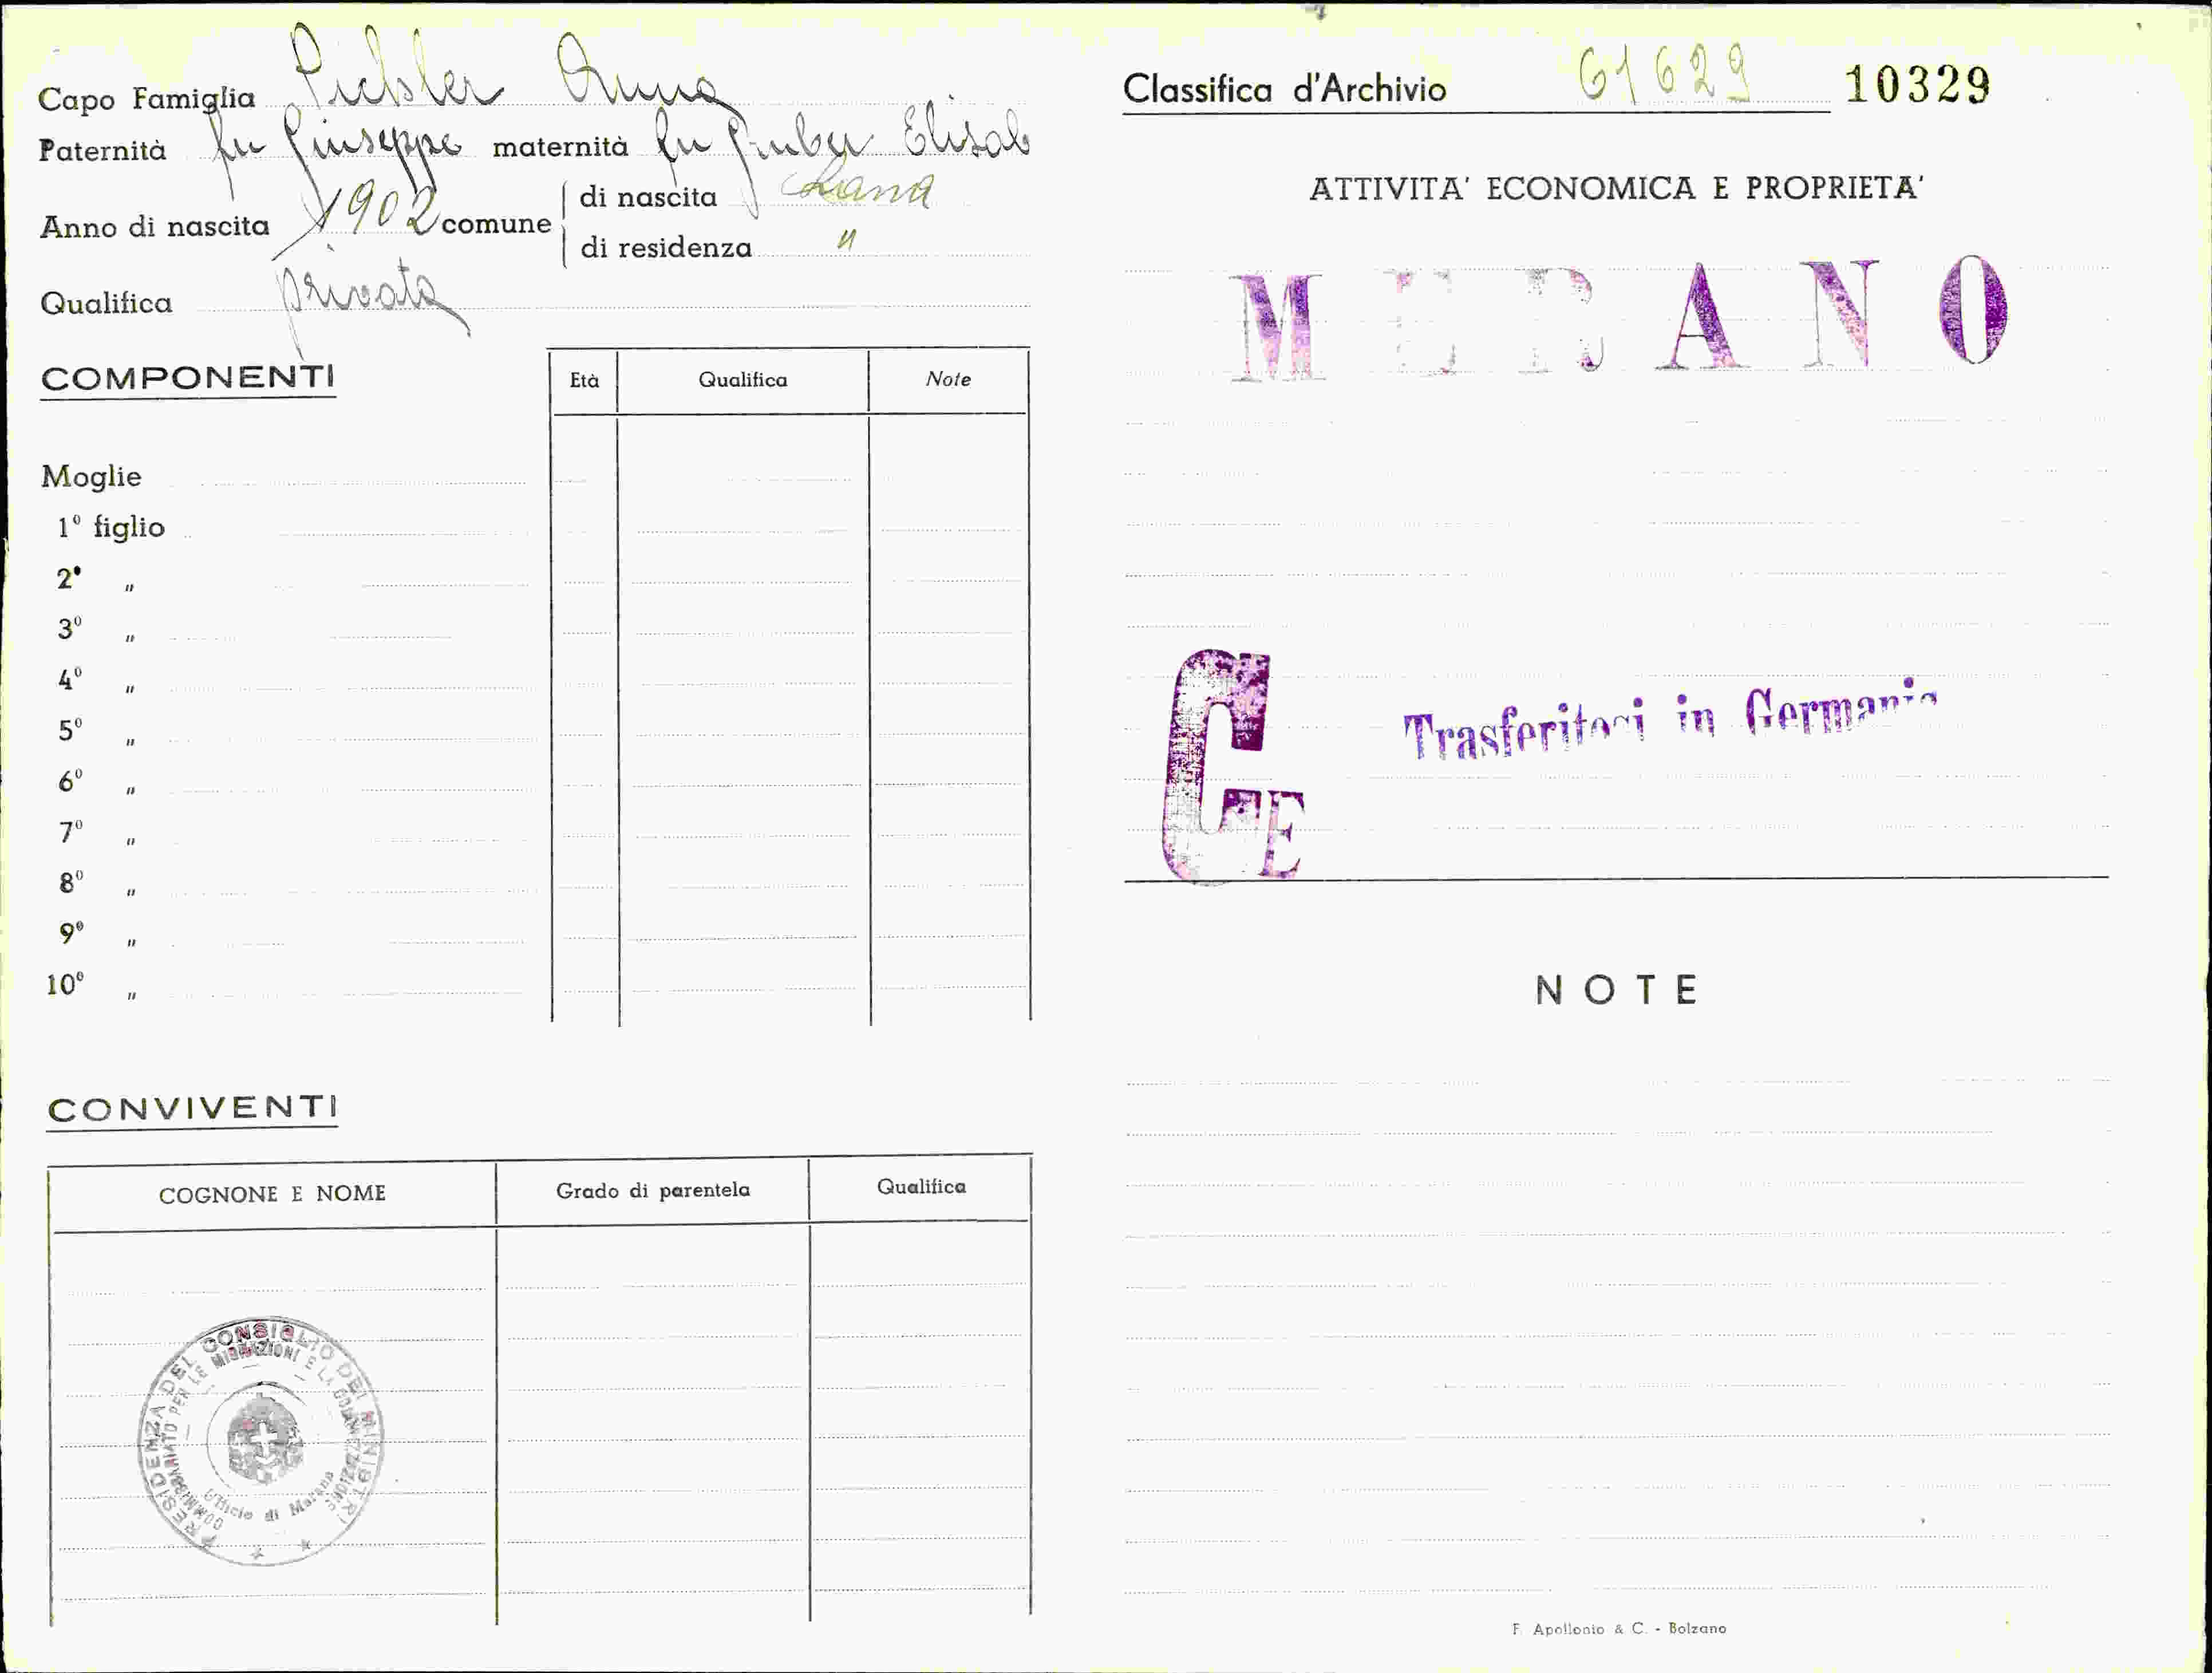 Capo Famiglia Pichler Anna
Paternità fu Giuseppe maternità fu Gruber Elisab
Anno di nascita 1902 comune di nascita Lana
di residenza "
Qualifica privata
COMPONENTI
Età Qualifica Note
Moglie
1º figlio
2º "
3º "
4º "
5º "
6º "
7º "
8º "
9º "
10º "
CONVIVENTI
COGNONE E NOME Grado di parentela Qualifica
PRESIDENZA DEL CONSIGLIO DEI MINISTRI
COMMISSARIATO PER LE MIGRAZIONI E LA COLONIZZAZIONE
Ufficio di Merano
Classifica d'Archivio 61629 10329
ATTIVITA' ECONOMICA E PROPRIETA'
MERANO
CE
Trasferitosi in Germania
NOTE
F. Apollonio & C. - Bolzano